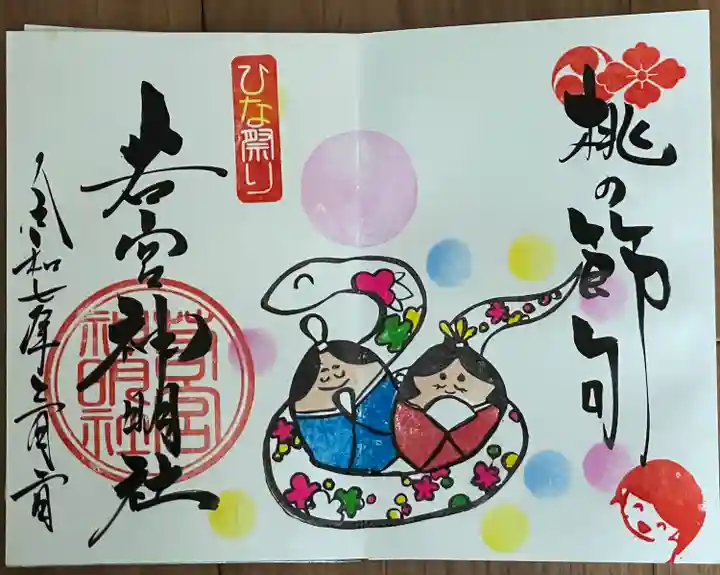 桃の節句
ひな祭り
若宮神明社
若宮
神明社
令和七年